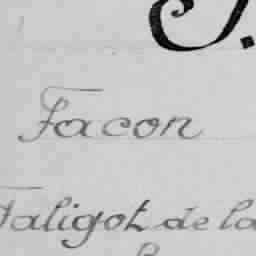 F.
Facon
Faligot de la